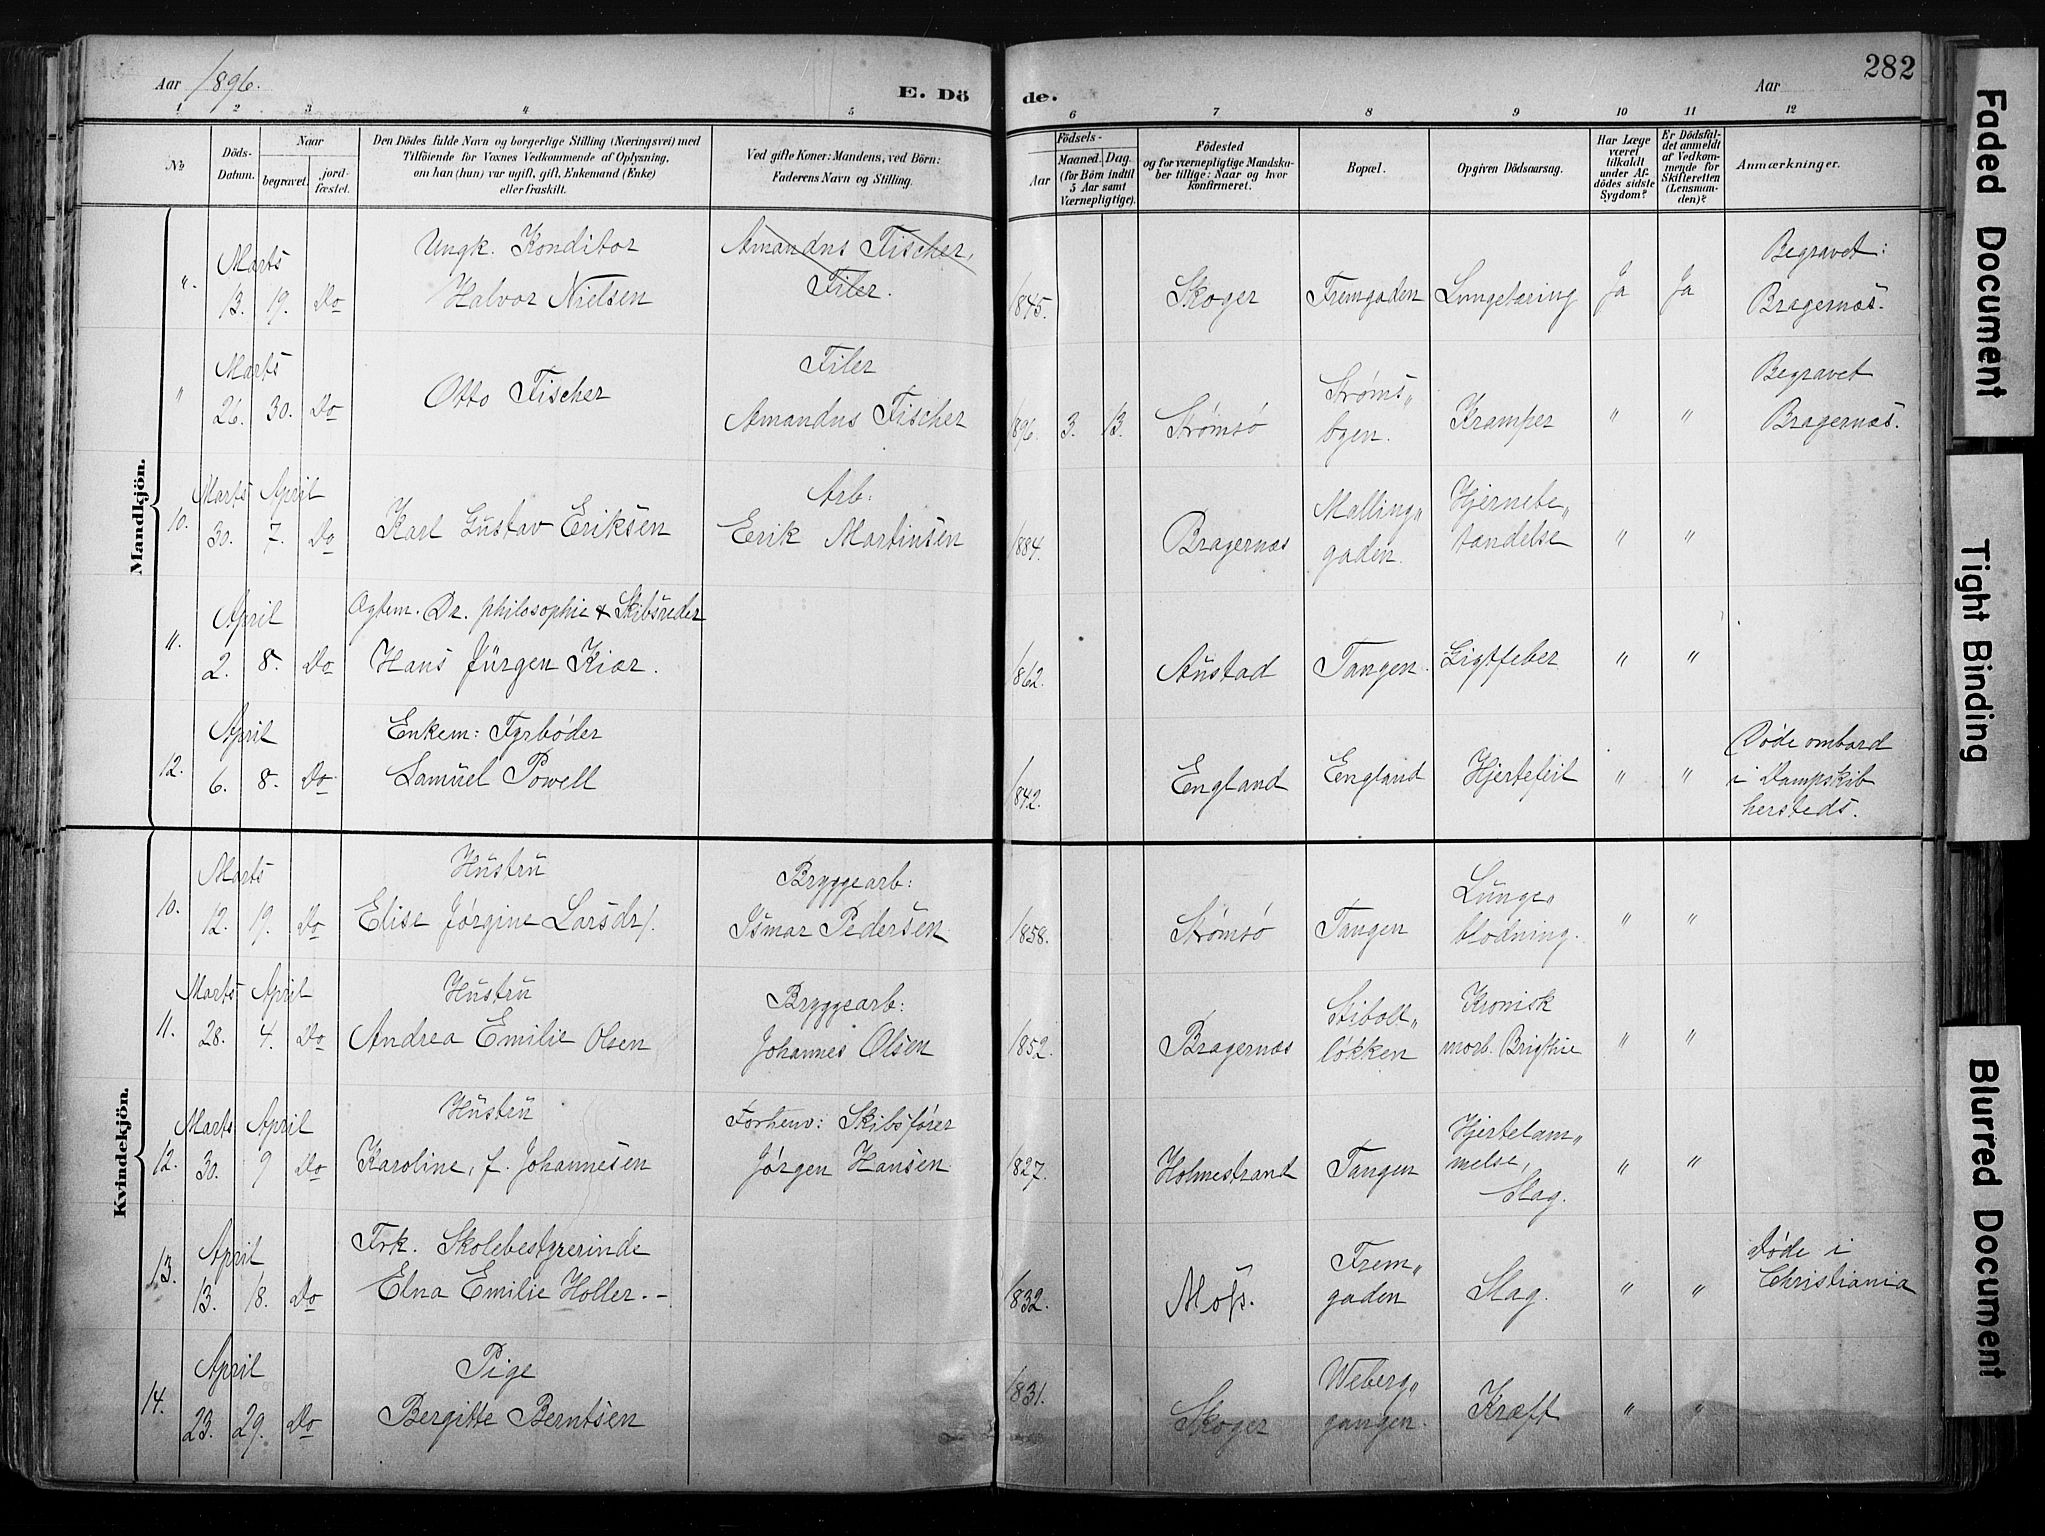 Aar 1896.
E. Dö de.
Aar
282
1 2 3 4 5 6 7 8 9 10 11 12
No
Döds-Datum.
Naar
begravet.
jord-fæstet.
Den Dödes fulde Navn og borgerlige Stilling (Næringsvei) med
Tilföiende for Voxnes Vedkommende af Oplysning,
om han (hun) var ugift, gift, Enkemand (Enke)
eller fraskilt.
Ved gifte Koner: Mandens, ved Börn:
Faderens Navn og Stilling.
Födsels-
Aar
Maaned. Dag.
(for Börn indtil
5 Aar samt
Værnepligtige).
Födested
og for værnepligtige Mandska-
ber tillige: Naar og hvor
konfirmeret.
Bopæl.
Opgiven Dödsaarsag.
Har Læge
været
tilkaldt
under Af-
dödes sidste
Sygdom?
Er Dödsfal-
det anmeldt
af Vedkom-
mende for
Skifteretten
(Lensman-
den)?
Anmærkninger.
Mandkjön.
" Marts 13. 19. Do
Ungk. Konditor
Halvor Nielsen
Amandus Fischer,
Filer.
1845. Skoger Fremgaden Lungetæring Ja Ja
Begravet:
Bragernæs.
" Marts 26. 30. Do
Otto Fischer
Filer
Amandus Fischer
1896. 3. 13. Strømsö
Strøms„
byen.
Kramper " "
Begravet
Bragernæs.
10. Marts 30. April 7. Do
Karl Gustav Eriksen
Arb:
Erik Martinsen
1884. Bragernæs
Malling„
gaden.
Hjernebe„
tændelse
" "
11. April 2. 8. Do
Ogtem. Dr. philosophie & Skibsreder
Hans Jürgen Kiær.
1862. Austad Tangen. Gigtfeber " "
12. April 6. 8. Do
Enkem: Fyrbøder
Samuel Powell
1842. England England Hjertefeil " "
Døde ombord
i Dampskib
hersteds.
Kvindekjön.
10. Marts 12. 19. Do
Hustru
Elise Jørgine Larsdr.
Bryggearb:
Ismar Pedersen
1858. Strømsö Tangen
Lunge„
blødning.
" "
11. Marts 28. April 4. Do
Hustru
Andrea Emilie Olsen
Bryggearb:
Johannes Olsen
1852. Bragernæs
Stibolt„
løkken
Kronisk
morb. Brigthie
" "
12. Marts 30. April 9 Do
Hustru
Karoline, f. Johannesen
Forhenv: Skibsfører
Jørgen Hansen
1827. Holmestrand Tangen
Hjertelam„
melse,
Slag.
" "
13. April 13. 18. Do
Frk. Skolebestyrerinde
Elna Emilie Holler.-
1832. Moss.
Frem„
gaden
Slag. " "
Døde i
Christiania
14. April 23. 29. Do
Pige
Bergitte Berntsen
1831. Skoger
Weberg„
gangen.
Kræft " "
Faded Document
Tight Binding
Blurred Document